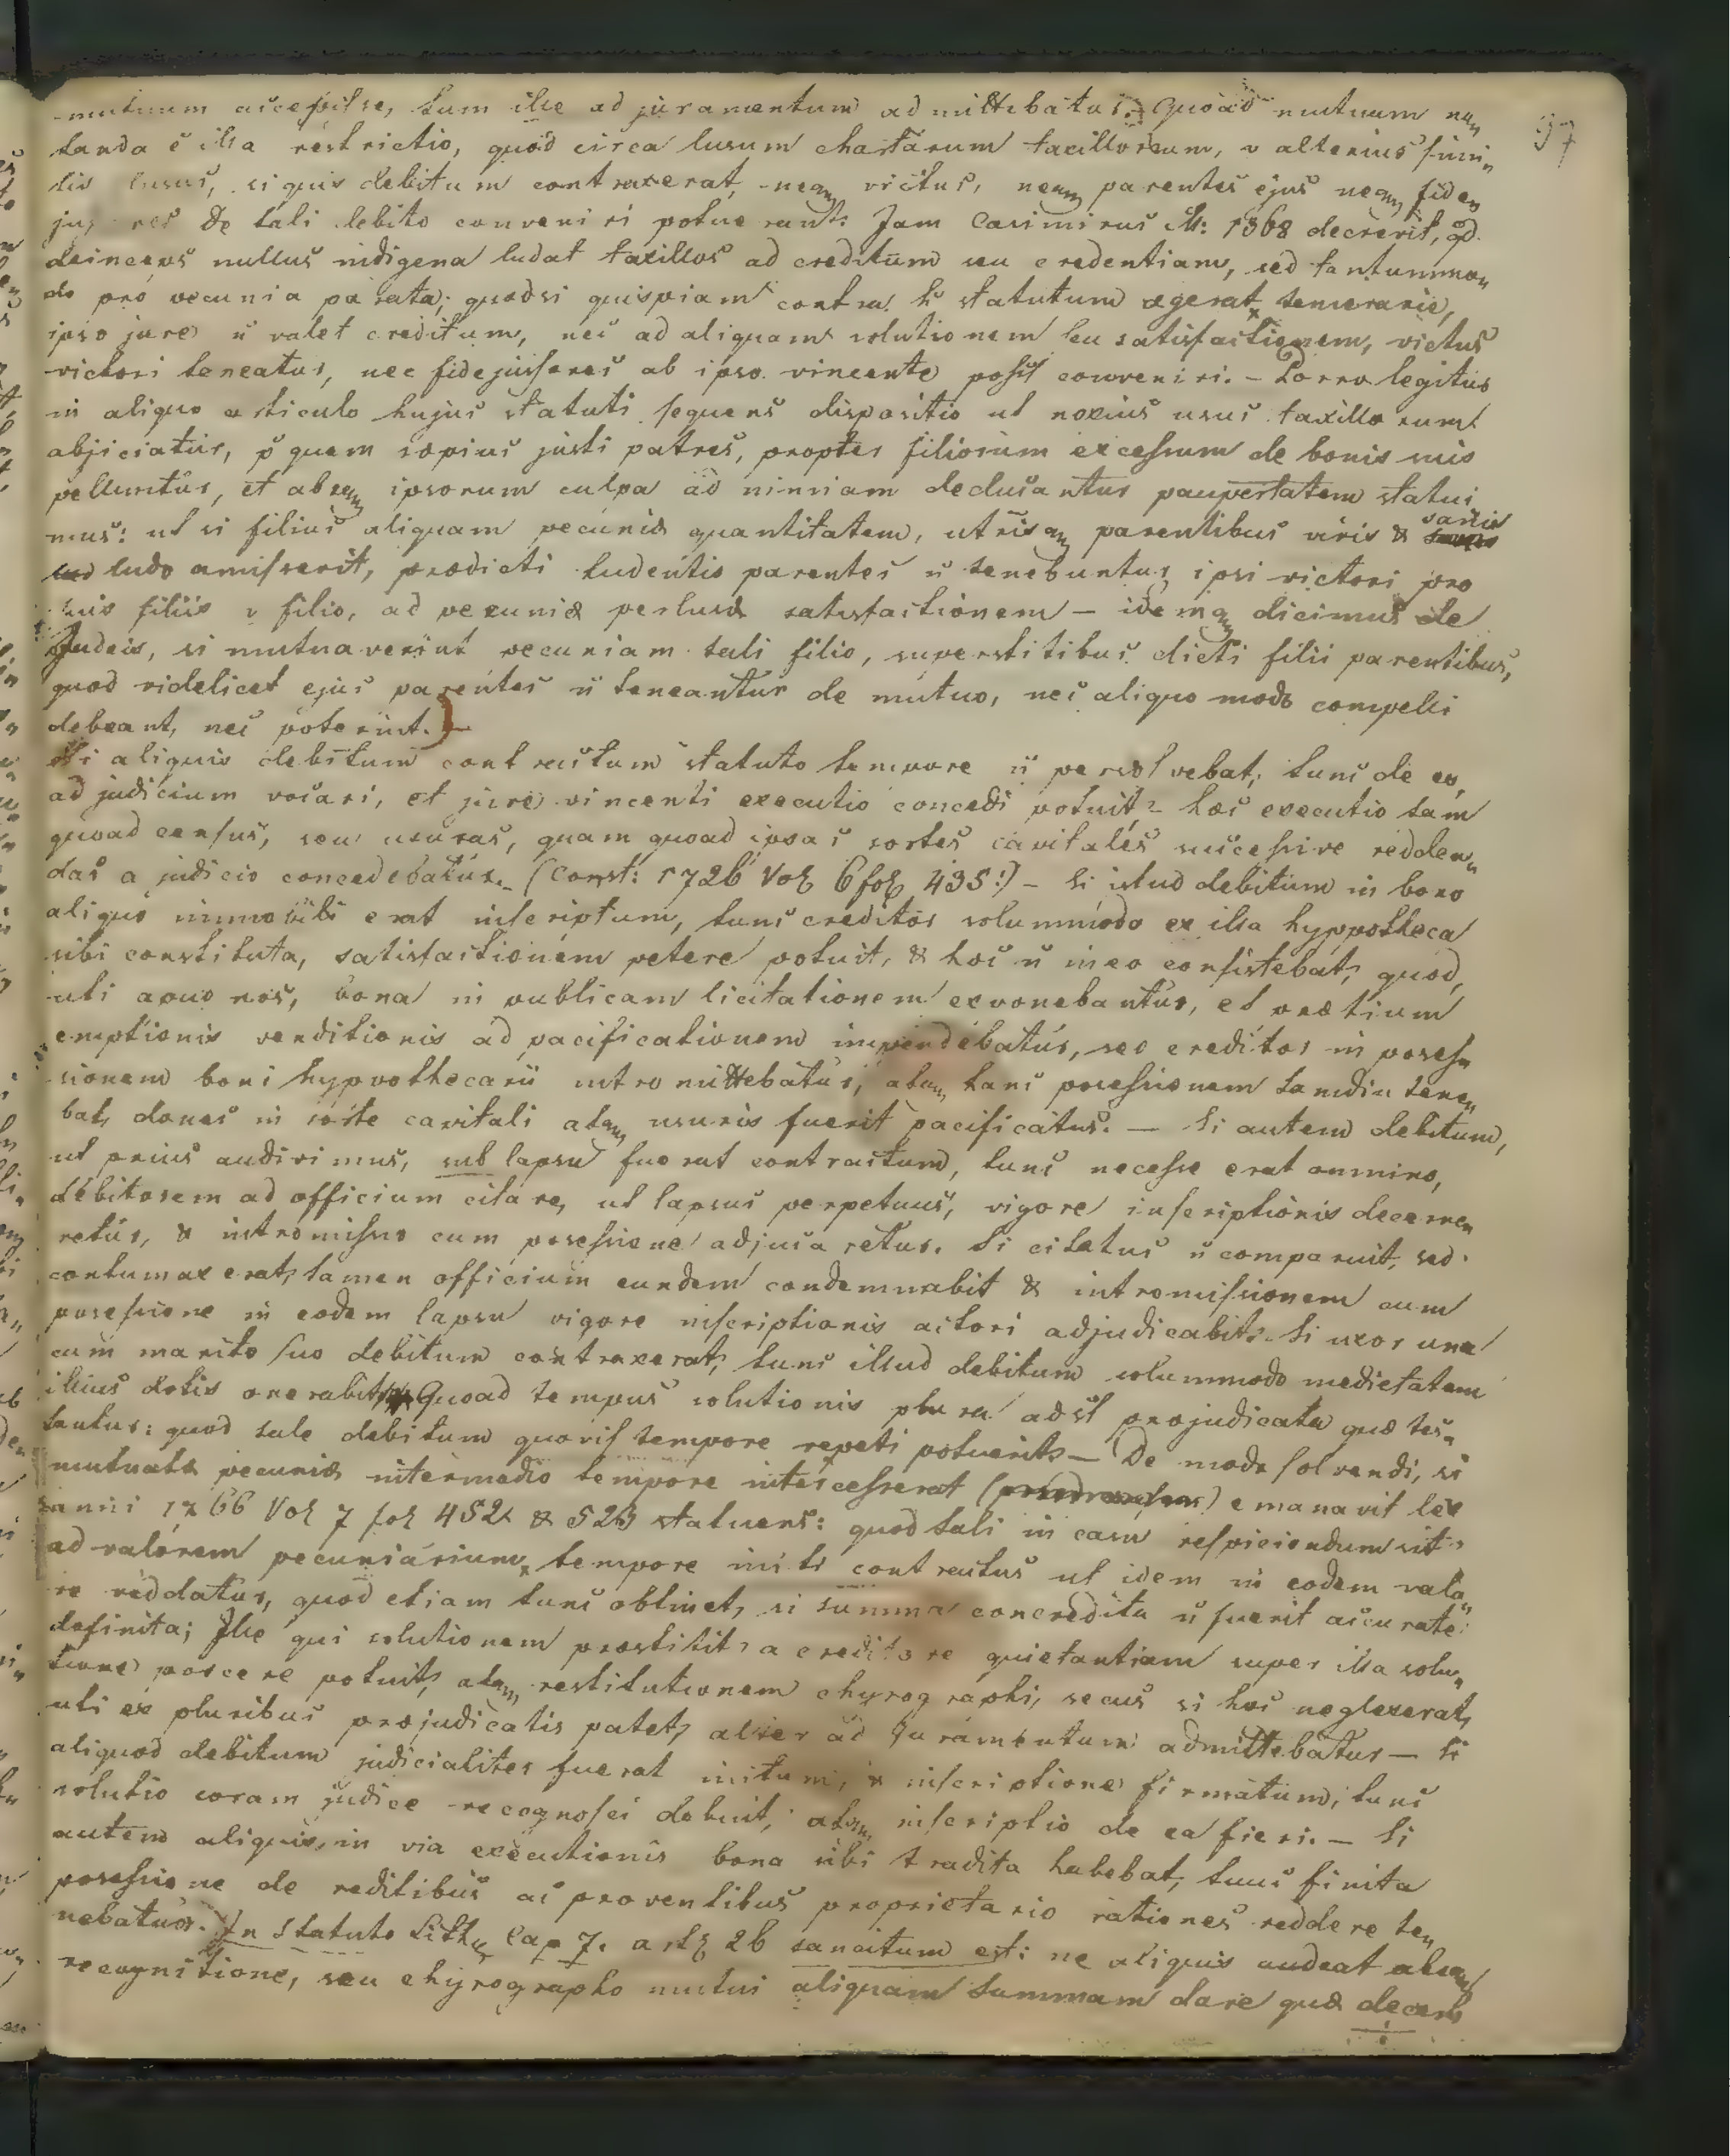 97
mutuum accepisse, tum ille ad juramentum admittebatur. Quoad mutuum no„
tanda e illa restrictio, quod circa lusum chartarum taxillorum, v alterius simi„
lis lusus, si quis debitum contraxerat, neq victus, neq parentes ejus neq fide„
jussores de tali debito conveniri potuerunt. Jam Casimirus M: 1368 decrevit, qd
deinceps nullus indigena ludat taxillos ad creditum seu credentiam, sed tantummo„
do pro pecunia parata; quodsi quispiam contra h statutum egerat temerarie,
ipso jure n valet creditum, nec ad aliquam solutionem seu satisfactionem, victus
victori teneatur, nec fidejussores ab ipso vincente possit conveniri. – Porro legitur
in aliquo articulo hujus statuti sequens dispositio ut noxius usus taxillorum
abjiciatur, p quem sæpius justi patres, propter filiorum excessum de bonis suis
pelluntur, et absq ipsorum culpa ad nimiam deducantur paupertatem statui
mus: ut si filius aliquam pecuniæ quantitatem, utrisq parentibus vivis & sanis
ludo amisserit, prædicti ludentis parentes n tenebuntur ipsi victori pro
suis filiis v filio, ad pecuniæ perlusæ satisfactionem – idemq dicimus de
Judeis, si mutuaverint pecuniam tali filio, superstitibus dicti filii parentibus,
quod videlicet ejus parentes n teneantur de mutuo, nec aliquo modo compelli
debeant, nec poterint.
Si aliquis debitum contractum statuto tempore n persolvebat, tunc de eo,
ad judicium vocari, et jure vincenti executio concedi potuit, – hæc executio tam
quoad census, seu usuras, quam quoad ipsas sortes capitales successive redden„
das a judicio concedebatur. – (Const: 1726 Vol 6 fol 435:) – Si istud debitum in bono
aliquo immobili erat inscriptum, tunc creditor solummodo ex illa hyppotheca
sibi constituta, satisfactionem petere potuit, & hoc n in eo consistebat, quod,
uti apud nos, bona in publicam licitationem exponebantur, et prætium
emptionis venditionis ad pacificationem impendebatur, sed creditor in posess„
sionem boni hyppothecarii intromittebatur, atq hanc posessionem tamdiu tene„
bat, donec in sorte capitali atq usuris fuerit pacificatus. — Si autem debitum,
ut prius audivimus, sub lapsu fuerat contractum, tunc necesse erat omnino,
debitorem ad officium citare, ut lapsus perpetuus, vigore inscriptionis decerne„
retur, & intromissio cum posessione adjucaretur. Si citatus n comparuit, sed
contumax erat, tamen officium eundem condemnabit & intromissionem cum
posessione in eodem lapsu vigore inscriptionis actori adjudicabit. Si uxor una
cum marito suo debitum contraxerat, tunc illud debitum solummodo medietatem
illius dotis onerabit. Quoad tempus solutionis plura adst præjudicata quæ tes„
tantur: quod tale debitum quovis tempore repeti potuerit – De modo solvendi, si
mutuatæ pecuniæ intermedio tempore intercesserat () emanavit lex
anni 1766 Vol 7 fol 452 & 523 statuens: quod tali in casu respiciendum sit
ad valorem pecuniarium, tempore initi contractus ut idem in eodem valo„
re reddatur, quod etiam tunc obtinet, si summa concredita n fuerit accurate
definita; Ille qui solutionem præstitit, a creditore quietantiam super illa solu„
tione poscere potuit, atq restitutionem chyrographi, secus si hoc neglexerat,
uti ex pluribus præjudicatis patet, alter ad juramentum admittebatur – Si
aliquod debitum judicialiter fuerat initum, & inscriptione firmatum, tunc
solutio coram judice recognosci debuit, atq inscriptio de ea fieri. – Si
autem aliquis, in via executionis bona sibi tradita habebat, tunc finita
posessione de reditibus ac proventibus proprietario rationes reddere te„
nebatur. In Statuto Litt Cap 7. art 26 sancitum est: ne aliquis audeat absq
recognitione, seu chyrographo mutui aliquam summam dare quæ decem